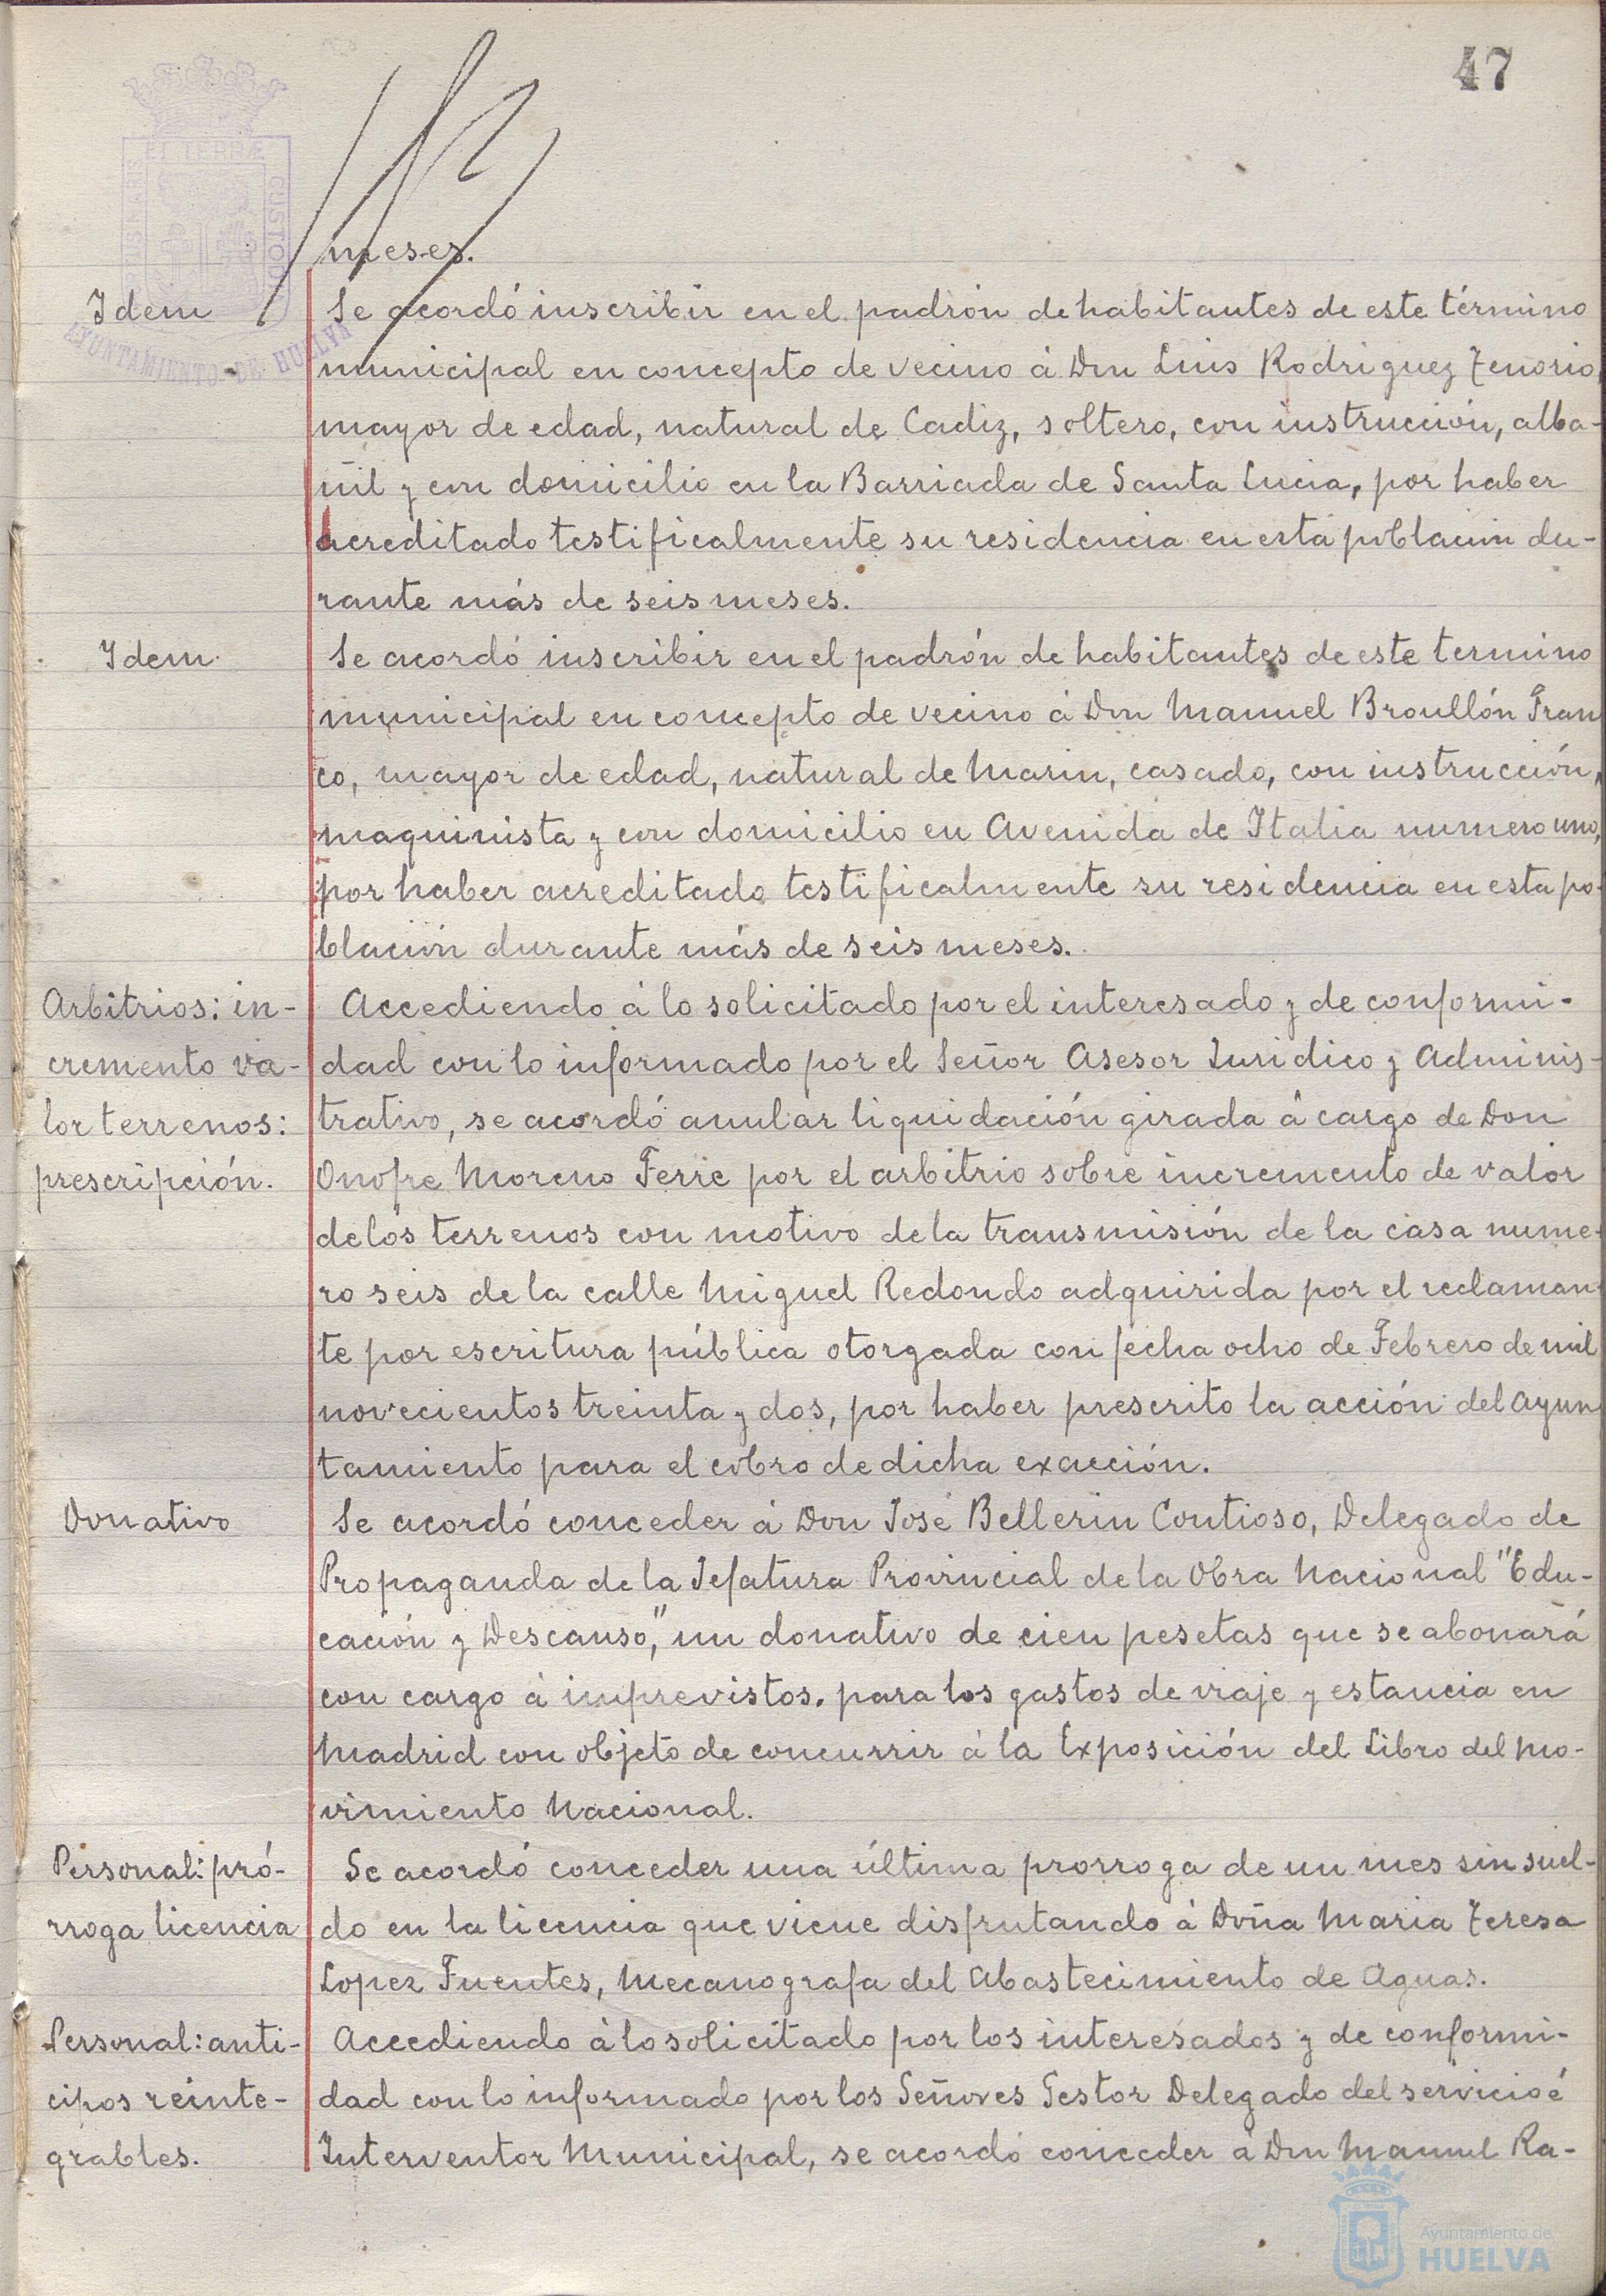 47
ET TERRÆ
CUSTODIA
AYUNTAMIENTO DE HUELVA
meses.
Idem
Se acordó inscribir en el padrón de habitantes de este término
municipal en concepto de vecino á Don Luis Rodriguez Tenorio,
mayor de edad, natural de Cadiz, soltero, con instrucción, alba-
ñil y con domicilio en la Barriada de Santa Lucia, por haber
acreditado testificalmente su residencia en esta población du-
rante más de seis meses.
Idem.
Se acordó inscribir en el padrón de habitantes de este termino
municipal en concepto de vecino á Don Manuel Broullón Fran
co, mayor de edad, natural de Marin, casado, con instrucción,
maquinista y con domicilio en Avenida de Italia numero uno,
por haber acreditado testificalmente su residencia en esta po-
blación durante más de seis meses.
Arbitrios: in-
cremento va-
lor terrenos:
prescripción.
Accediendo á lo solicitado por el interesado y de conformi-
dad con lo informado por el Señor Asesor Juridico y Adminis-
trativo, se acordó anular liquidación girada á cargo de Don
Onofre Moreno Ferre por el arbitrio sobre incremento de valor
de los terrenos con motivo de la transmisión de la casa nume-
ro seis de la calle Miguel Redondo adquirida por el reclaman
te por escritura pública otorgada con fecha ocho de Febrero de mil
novecientos treinta y dos, por haber prescrito la acción del Ayun
tamiento para el cobro de dicha exacción.
Donativo
Se acordó conceder á Don José Bellerin Contioso, Delegado de
Propaganda de la Jefatura Provincial de la Obra Nacional "Edu-
cación y Descanso," un donativo de cien pesetas que se abonará
con cargo á imprevistos. para los gastos de viaje y estancia en
Madrid con objeto de concurrir á la Exposición del Libro del Mo-
vimiento Nacional.
Personal: pró-
rroga licencia
Se acordó conceder una última prorroga de un mes sin suel-
do en la licencia que viene disfrutando á Doña Maria Teresa
Lopez Fuentes, Mecanografa del Abastecimiento de Aguas.
Personal: anti-
cipos reinte-
grables.
Accediendo á lo solicitado por los interesados y de conformi-
dad con lo informado por los Señores Gestor Delegado del servicio é
Interventor Municipal, se acordó conceder á Don Manuel Ra-
Ayuntamiento de
HUELVA